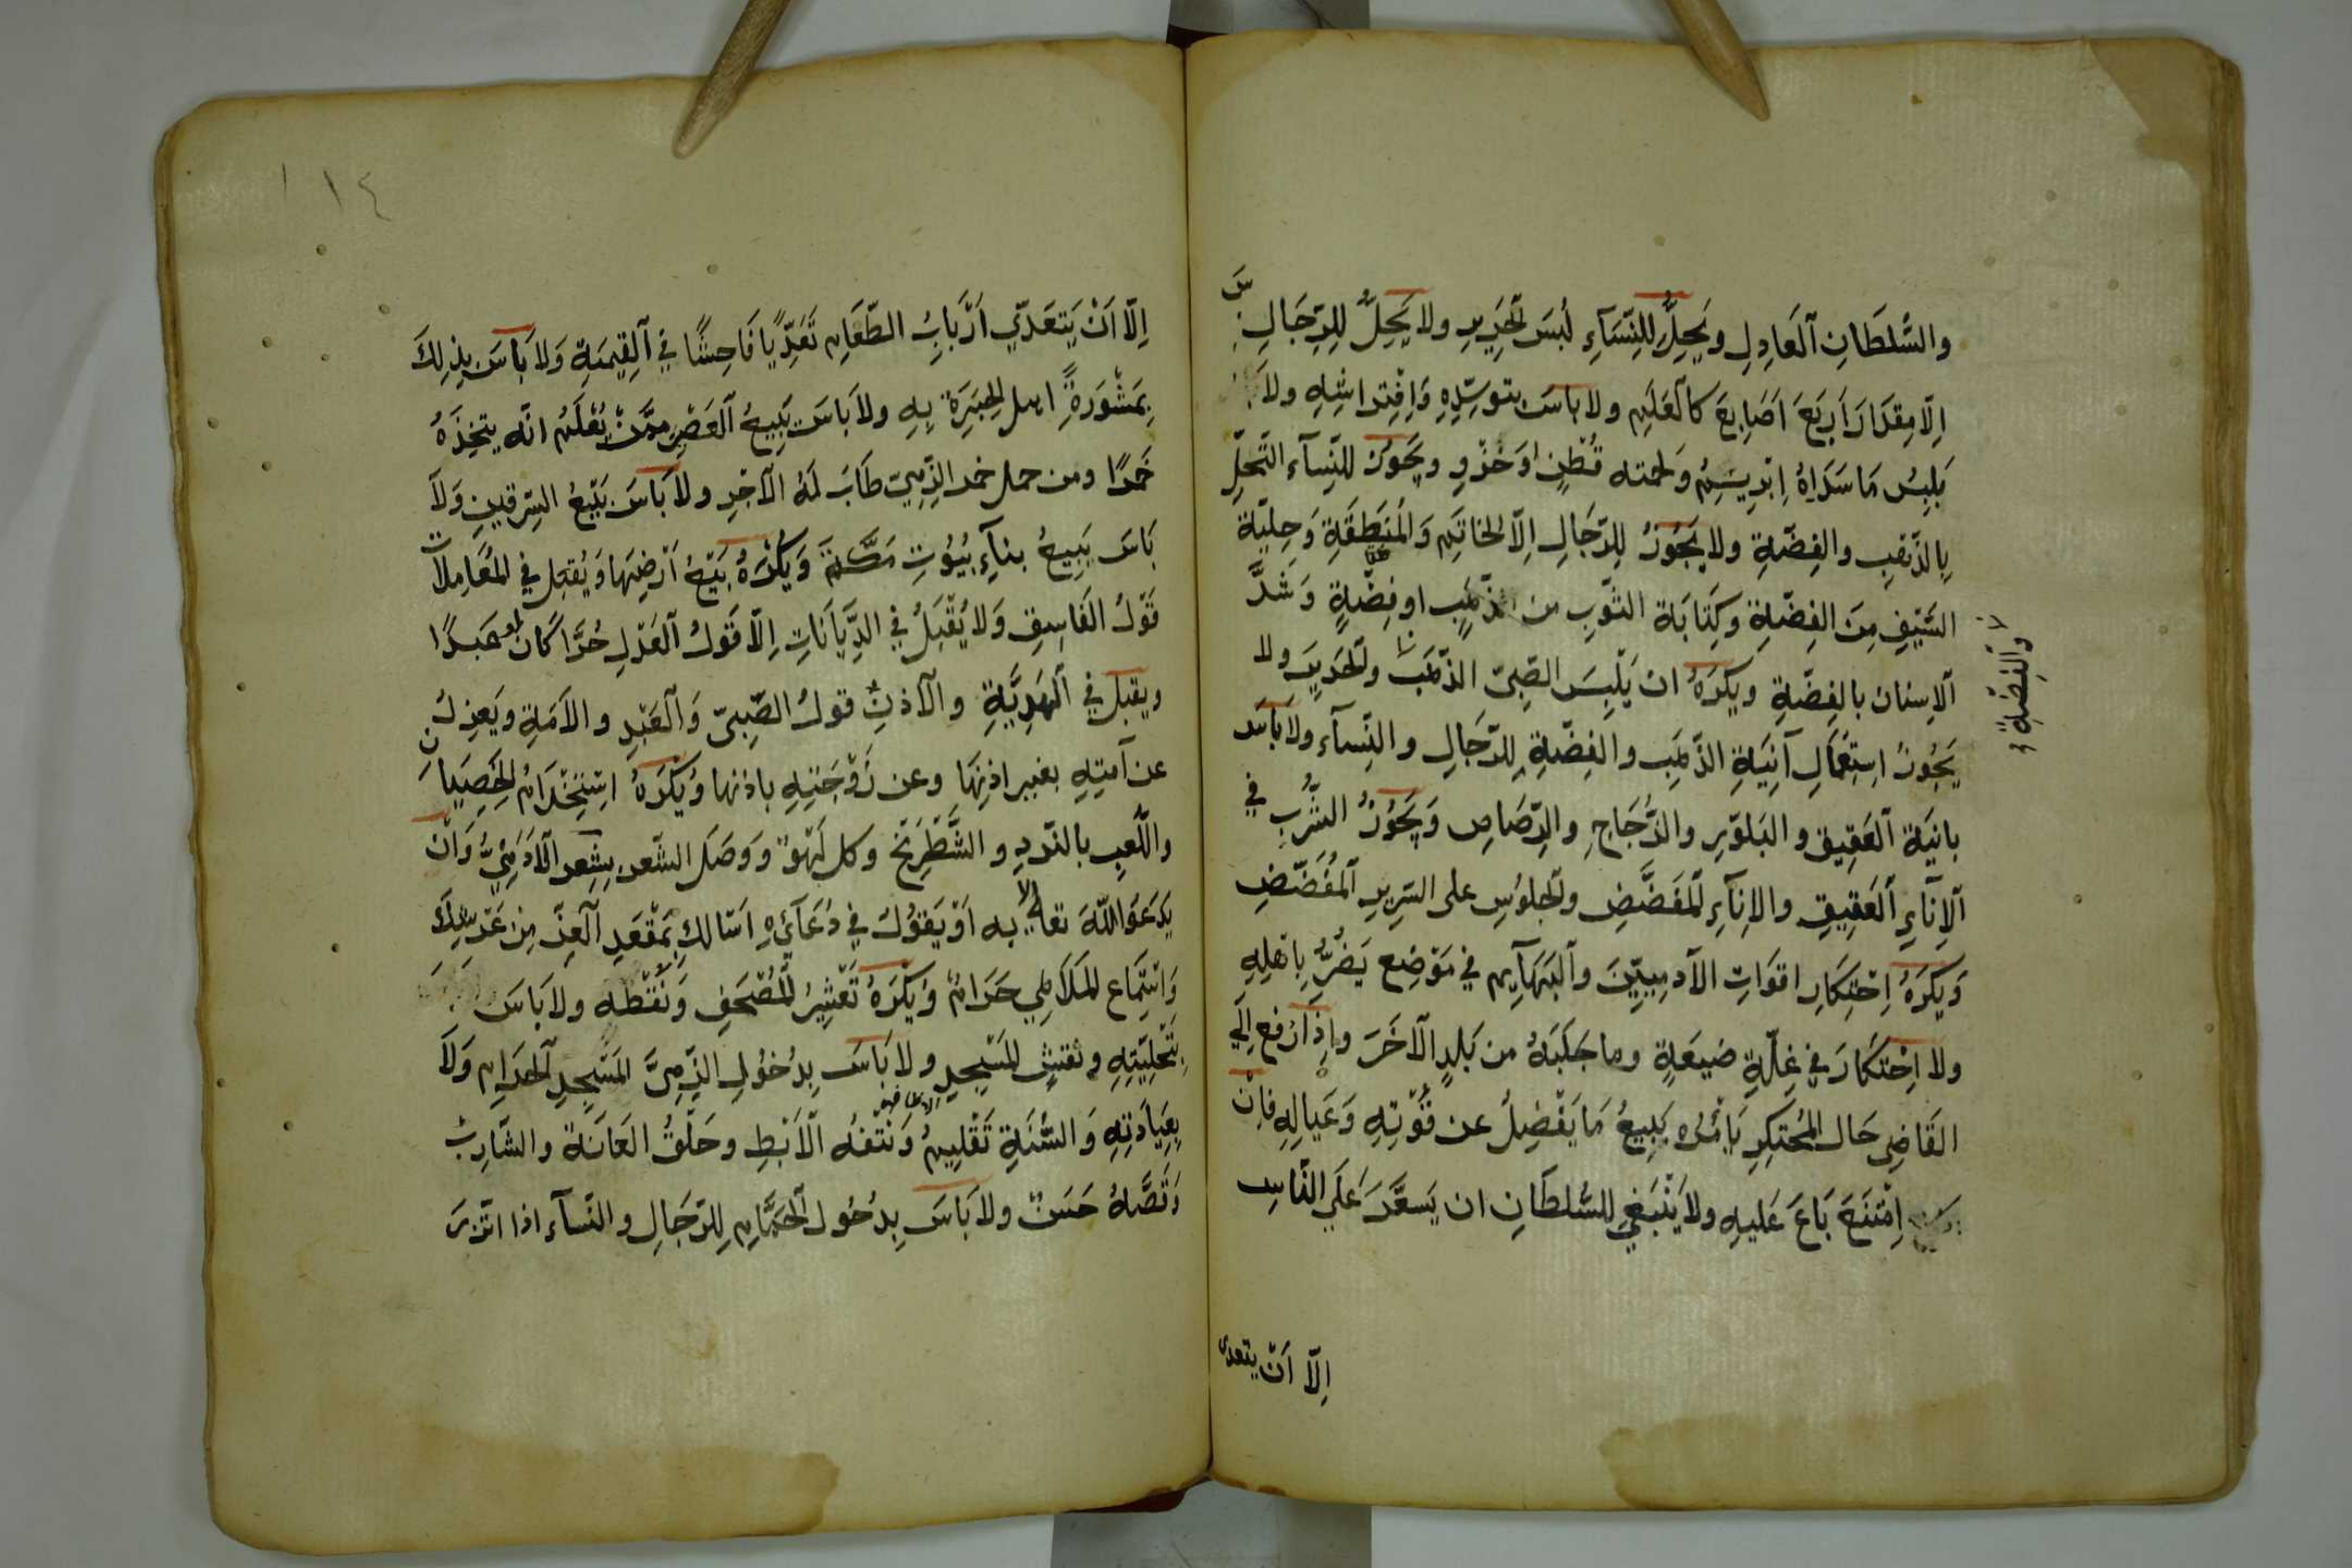 والسُّلطَانِ العَادِلِ ويَحِلُّ للنِّسَآءِ لُبسَ الحَرِيرِ ولا يَحِلُّ لِلرِّجَالِ
اِلّا مِقدَارَ اَربَعَ اَصَابِعَ كالعَلَمِ ولا باسَ بتوسّدِهِ وَافْتِراشِهِ ولا
بلبسِ مَا سَدَاهُ اِبْرِيسَمُ وَلحمته قُطْنٍ اوَ خَزٍّ ويجَوزُ للنِّسآء التَّحلِّ
بِالذّهَبِ والفِضّةِ ولا يجَوُزُ لِلرّجَالِ اِلّا الخاتَمِ وَالمنطَقَةِ وَحِليَة
السَّيْفِ مِنَ الفِضَّةِ وكِتَابَة الثّوبِ من الذّهَبٍ او فِضّةٍ وَشَدَّ
الاسنان بالفِضّةِ ويكرَهُ ان يَلبِسَ الصّبىّ الذّهَبَ والحَرِيرَ ولا
والفِضّةِ
يَجُوزُ اِستِعَمال آنِيَةِ الذّهَبِ والفِضّةِ لِلرّجَالِ والنِّسآء ولا باَسَ
بانيَة العَقيق والبَلوّرِ والزُّجَاجِ والرّصَاصِ وَيَجُوزُ الشُّربِ في
الاِنَآءِ العَقِيقِ والاِنَآءِ المُفَضَّضِ والجلوُسِ على السّرِيرِ المُفَضّضِ
وَيَكرَهُ اِحْتِكَارِ اقوَاتِ الآدمِيّينَ والبَهَآيمِ في مَوْضِعٍ يَضُرُّ بِاَهْلِهِ
ولا اِحْتكَارَ في غِلّةِ ضَيعَةٍ وما جَلَبَهُ من بَلدٍ الآخَرَ وَاِذَا رُفعِ اِلَي
القَاضِي حَال المُحتَكِرِ يَاْمُرُه بِبيعُ مَا يَفْضِلُ عن قُوّتِهِ وَعَيالِهِ فاِنْ
اِمْتَنَعَ بَاعَ عَليهِ ولا يَنْبَغِي للسُّلطَانِ ان يَسعَّرَ عَلَي النَّاسِ
اِلّا اَنْ يتعدى
١١٤
اِلّا اَنْ يَتعَدّي اَرْبَابُ الطّعَامِ تَعَدِّيًا فَاحِشًا في القِيمَةِ وَلا بَاسَ بِذلِكَ
بِمَشْوَرَةِ اهل الخِبرَة بِهِ ولا بَاسَ بِبيعُ العَصْرِ ممّنْ يُعْلَمُ انّه يتخِذَهُ
خَمرًا ومن حمل خمر الذّمِيّ طَابَ لَهُ الآجْرِ ولا بَاسَ بَبيعُ السِّرقينِ وَلاَ
بَاسَ بِبيعُ بنآءِ بُيُوُتِ مَكّةَ وَيُكْرَهُ بَيْعُ اَرْضِهَا وَيُقبَل في المُعَامِلاَتِ
قَوْلُ الفَاسِقِ وَلا يُقْبَلُ في الدِّيَانَاتِ اِلّا قَوْلُ العَدْلِ حُرًّا كَان او عَبدًا
ويقبل في الهَدِيَّةِ والآذنِ قولُ الصّبِىّ وَالعَبْدِ والاَمَةِ ويَعزِلُ
عن اَمتِهِ بغير اذنِهَا وعن زَوْجَتِهِ باذنها وَيُكْرَهُ اِسْتِخْدَامُ الخِصِيَانِ
واللّعبِ بالنّردِ والشَّطرَنْجِ وكل لَهْوٍ ووَصَلَ الشّعر بِشِعر الآدَمِيُّ وَاَنْ
يَدعَوَا للّهَ تعالٰي الا به اَوْ يَقوُلَ في دُعَآئهِ اَسَالكَ بِمَقْعَدِ العِزِّ مِن عَرْشِكَ
وَاسْتِمَاع المَلاَهِي حَرَامٌ وَيُكْرَهُ تَعْشِيرُ المُصْحَفِ وَنُقْطَه ولا باَسَ
بِتَحْلِيَتِهِ ونقش المَسْجِدِ ولا بَاسَ بِدُخوُلِ الذّمِىّ المَسْجِدِ الحَرَامِ وَلاَ
بِعِيَادَتِهِ وَالسُّنَةِ تَقْلِيمُ الاظافير وَنَتْفُه الآبْطِ وحَلْقُ العَانَة والشّارِبْ
وَقَصَّهُ حَسَنٌ ولا بَاسَ بِدُخُول الحَمَّامِ لِلرّجَالِ والنّسآء اذا اتّزرَ